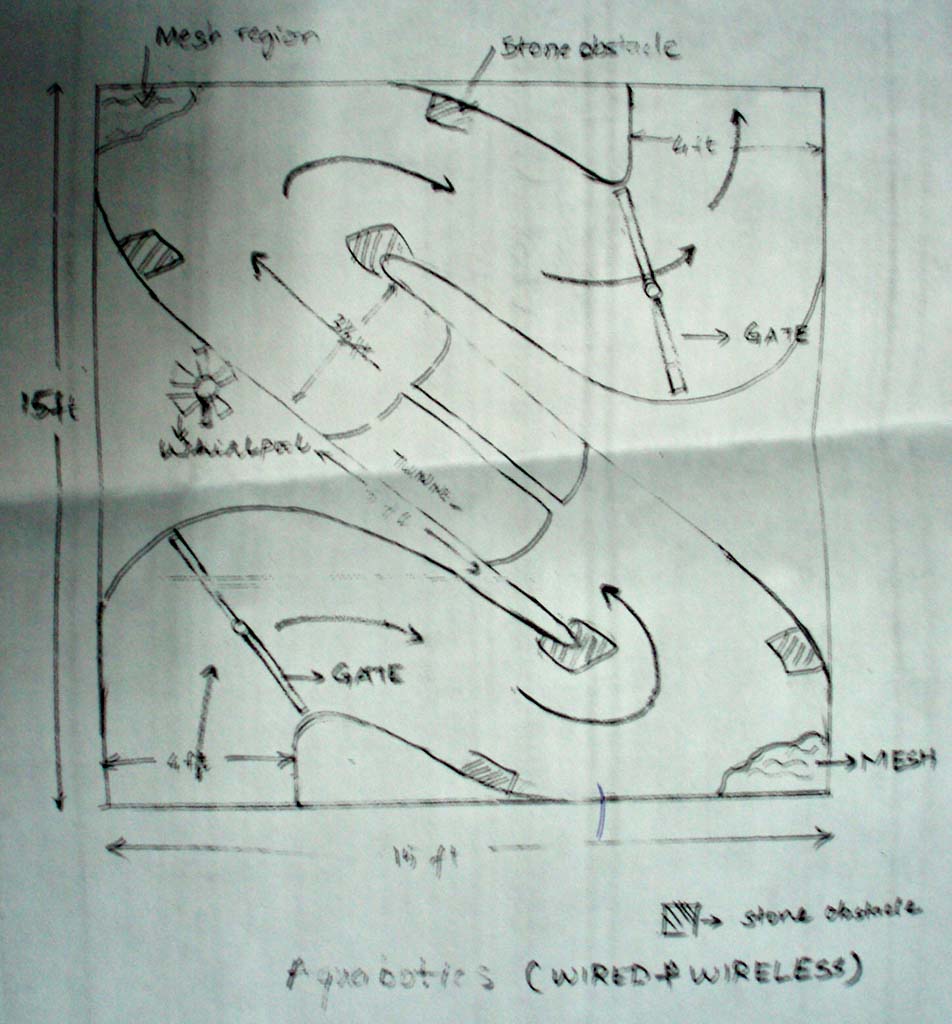 Mesh region
Stone obstacle
4ft
GATE
15ft
Whirlpal
TUNNEL
GATE
4ft
MESH
15 ft
stone obstacle
Aquabotics (WIRED & WIRELESS)